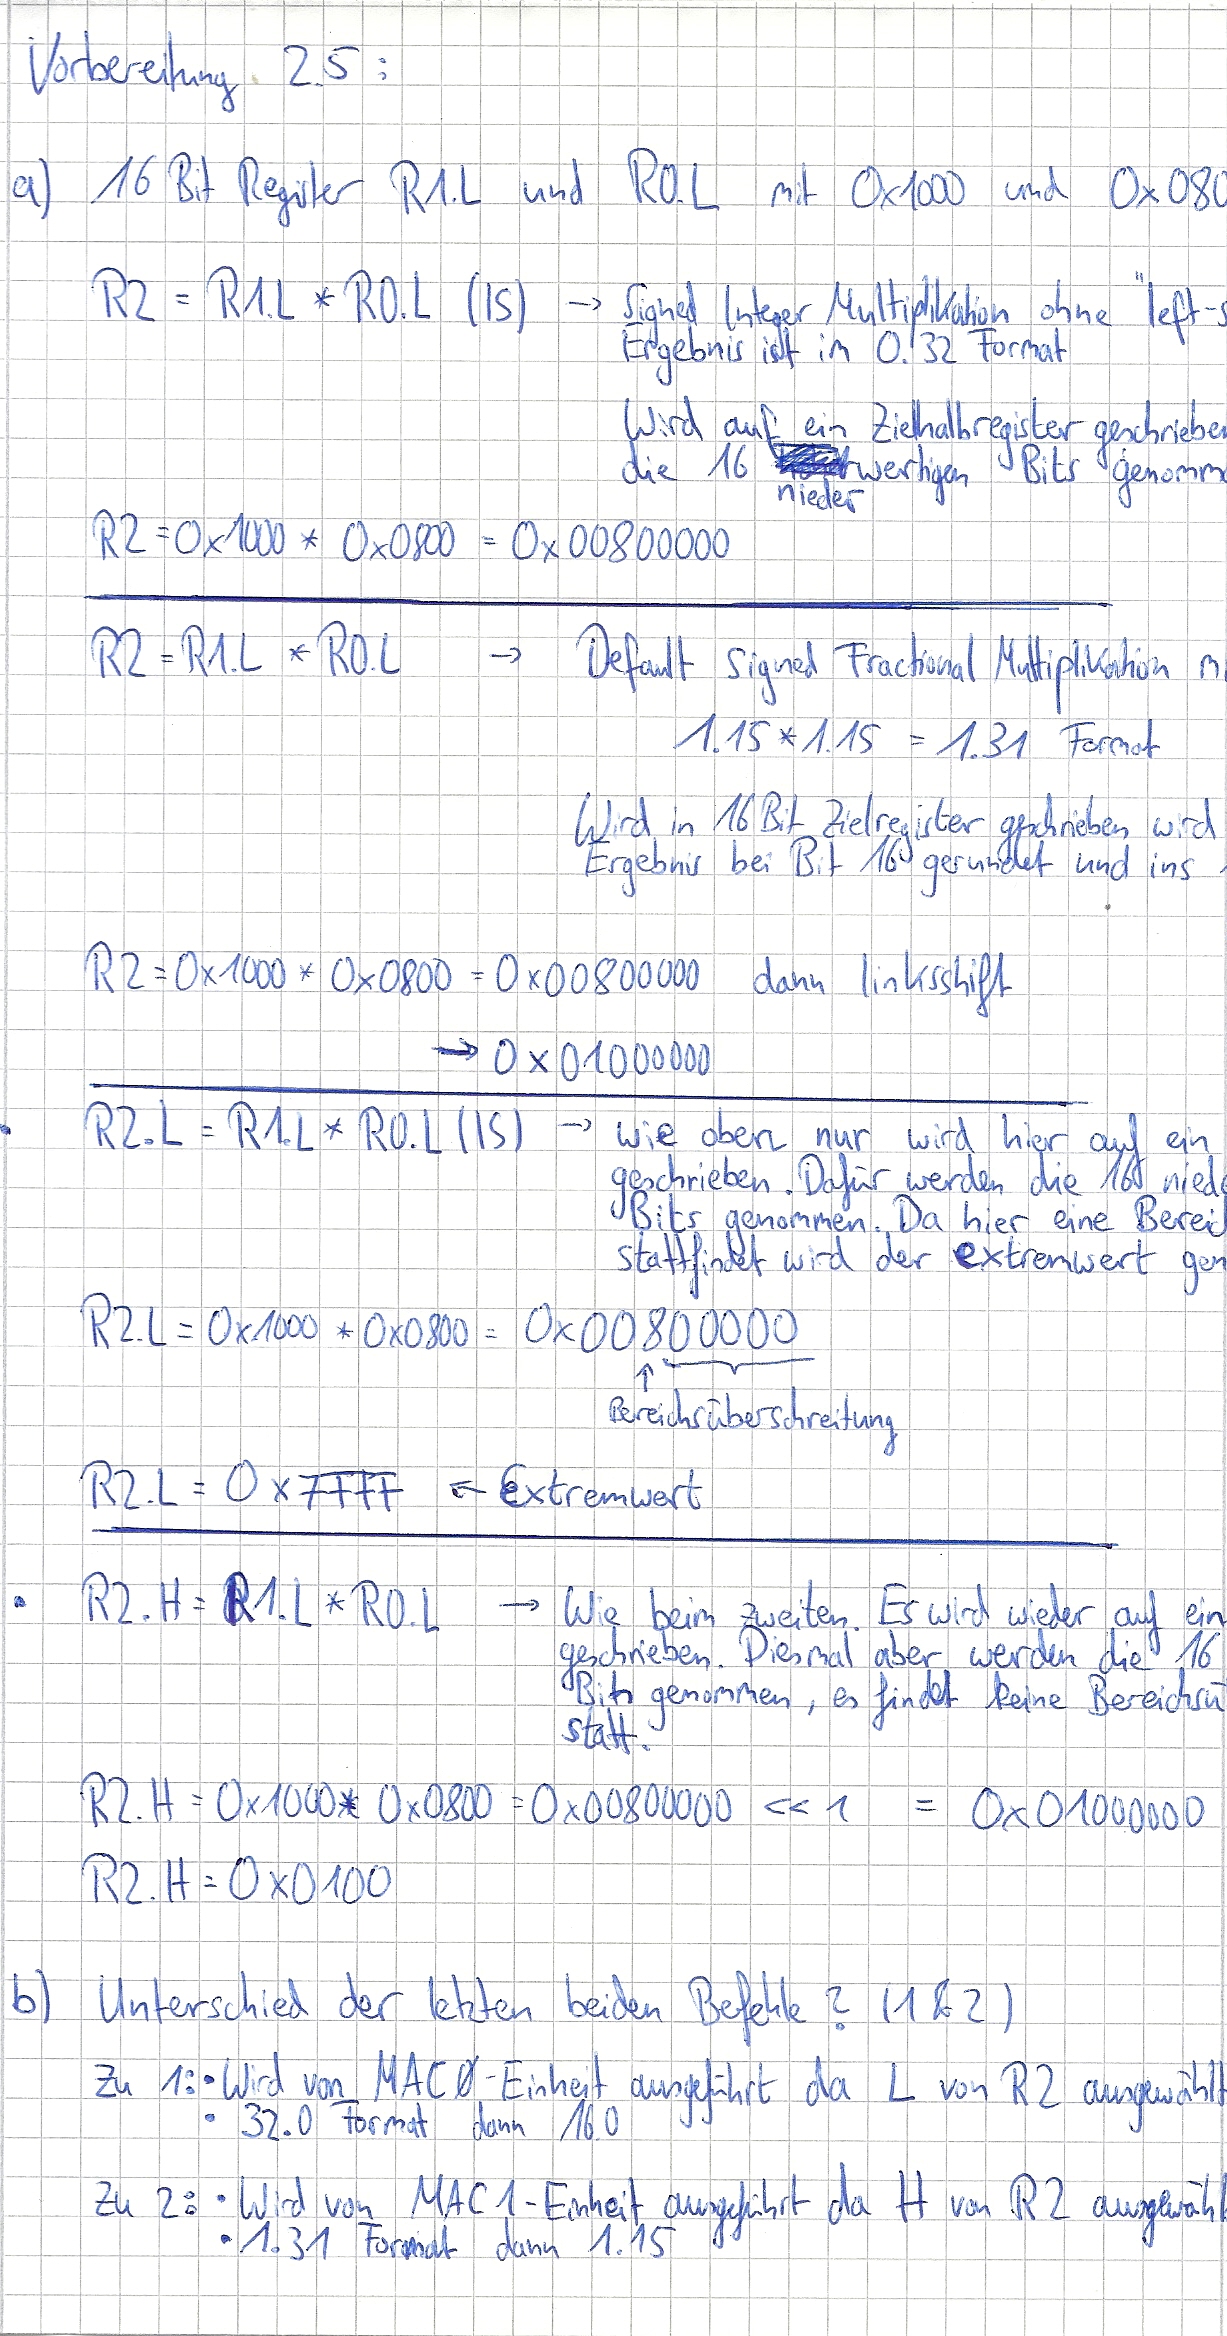 Vorbereitung 2.5:
a) 16 Bit Register R1.L und R0.L mit 0x1000 und 0x080
R2 = R1.L * R0.L (IS) → Signed Integer Multiplikation ohne "left-s
Ergebnis ist im 0.32 Format
Wird auf ein Zielhalbregister geschrieben
die 16 niederwertigen Bits genomm
R2 = 0x1000 * 0x0800 = 0x00800000
R2 = R1.L * R0.L → Default signed Fractional Multiplikation m
1.15 * 1.15 = 1.31 Format
Wird in 16 Bit Zielregister geschrieben wird
Ergebnis bei Bit 16 gerundet und ins
R2 = 0x1000 * 0x0800 = 0x00800000 dann linksshift
→ 0x01000000
• R2.L = R1.L * R0.L (IS) → wie oben nur wird hier auf ein
geschrieben. Dafür werden die 16 niede
Bits genommen. Da hier eine Bereic
stattfindet wird der extremwert gen
R2.L = 0x1000 * 0x0800 = 0x00800000
↑
Bereichsüberschreitung
R2.L = 0x7FFF ← Extremwert
• R2.H = R1.L * R0.L → Wie beim zweiten. Es wird wieder auf ein
geschrieben. Diesmal aber werden die 16
Bits genommen, es findet keine Bereichsü
statt.
R2.H = 0x1000 * 0x0800 = 0x00800000 << 1 = 0x01000000
R2.H = 0x0100
b) Unterschied der letzten beiden Befehle? (1 & 2)
Zu 1: • Wird von MAC0-Einheit ausgeführt da L von R2 ausgewählt
• 32.0 Format dann 16.0
Zu 2: • Wird von MAC1-Einheit ausgeführt da H von R2 ausgewähl
• 1.31 Format dann 1.15